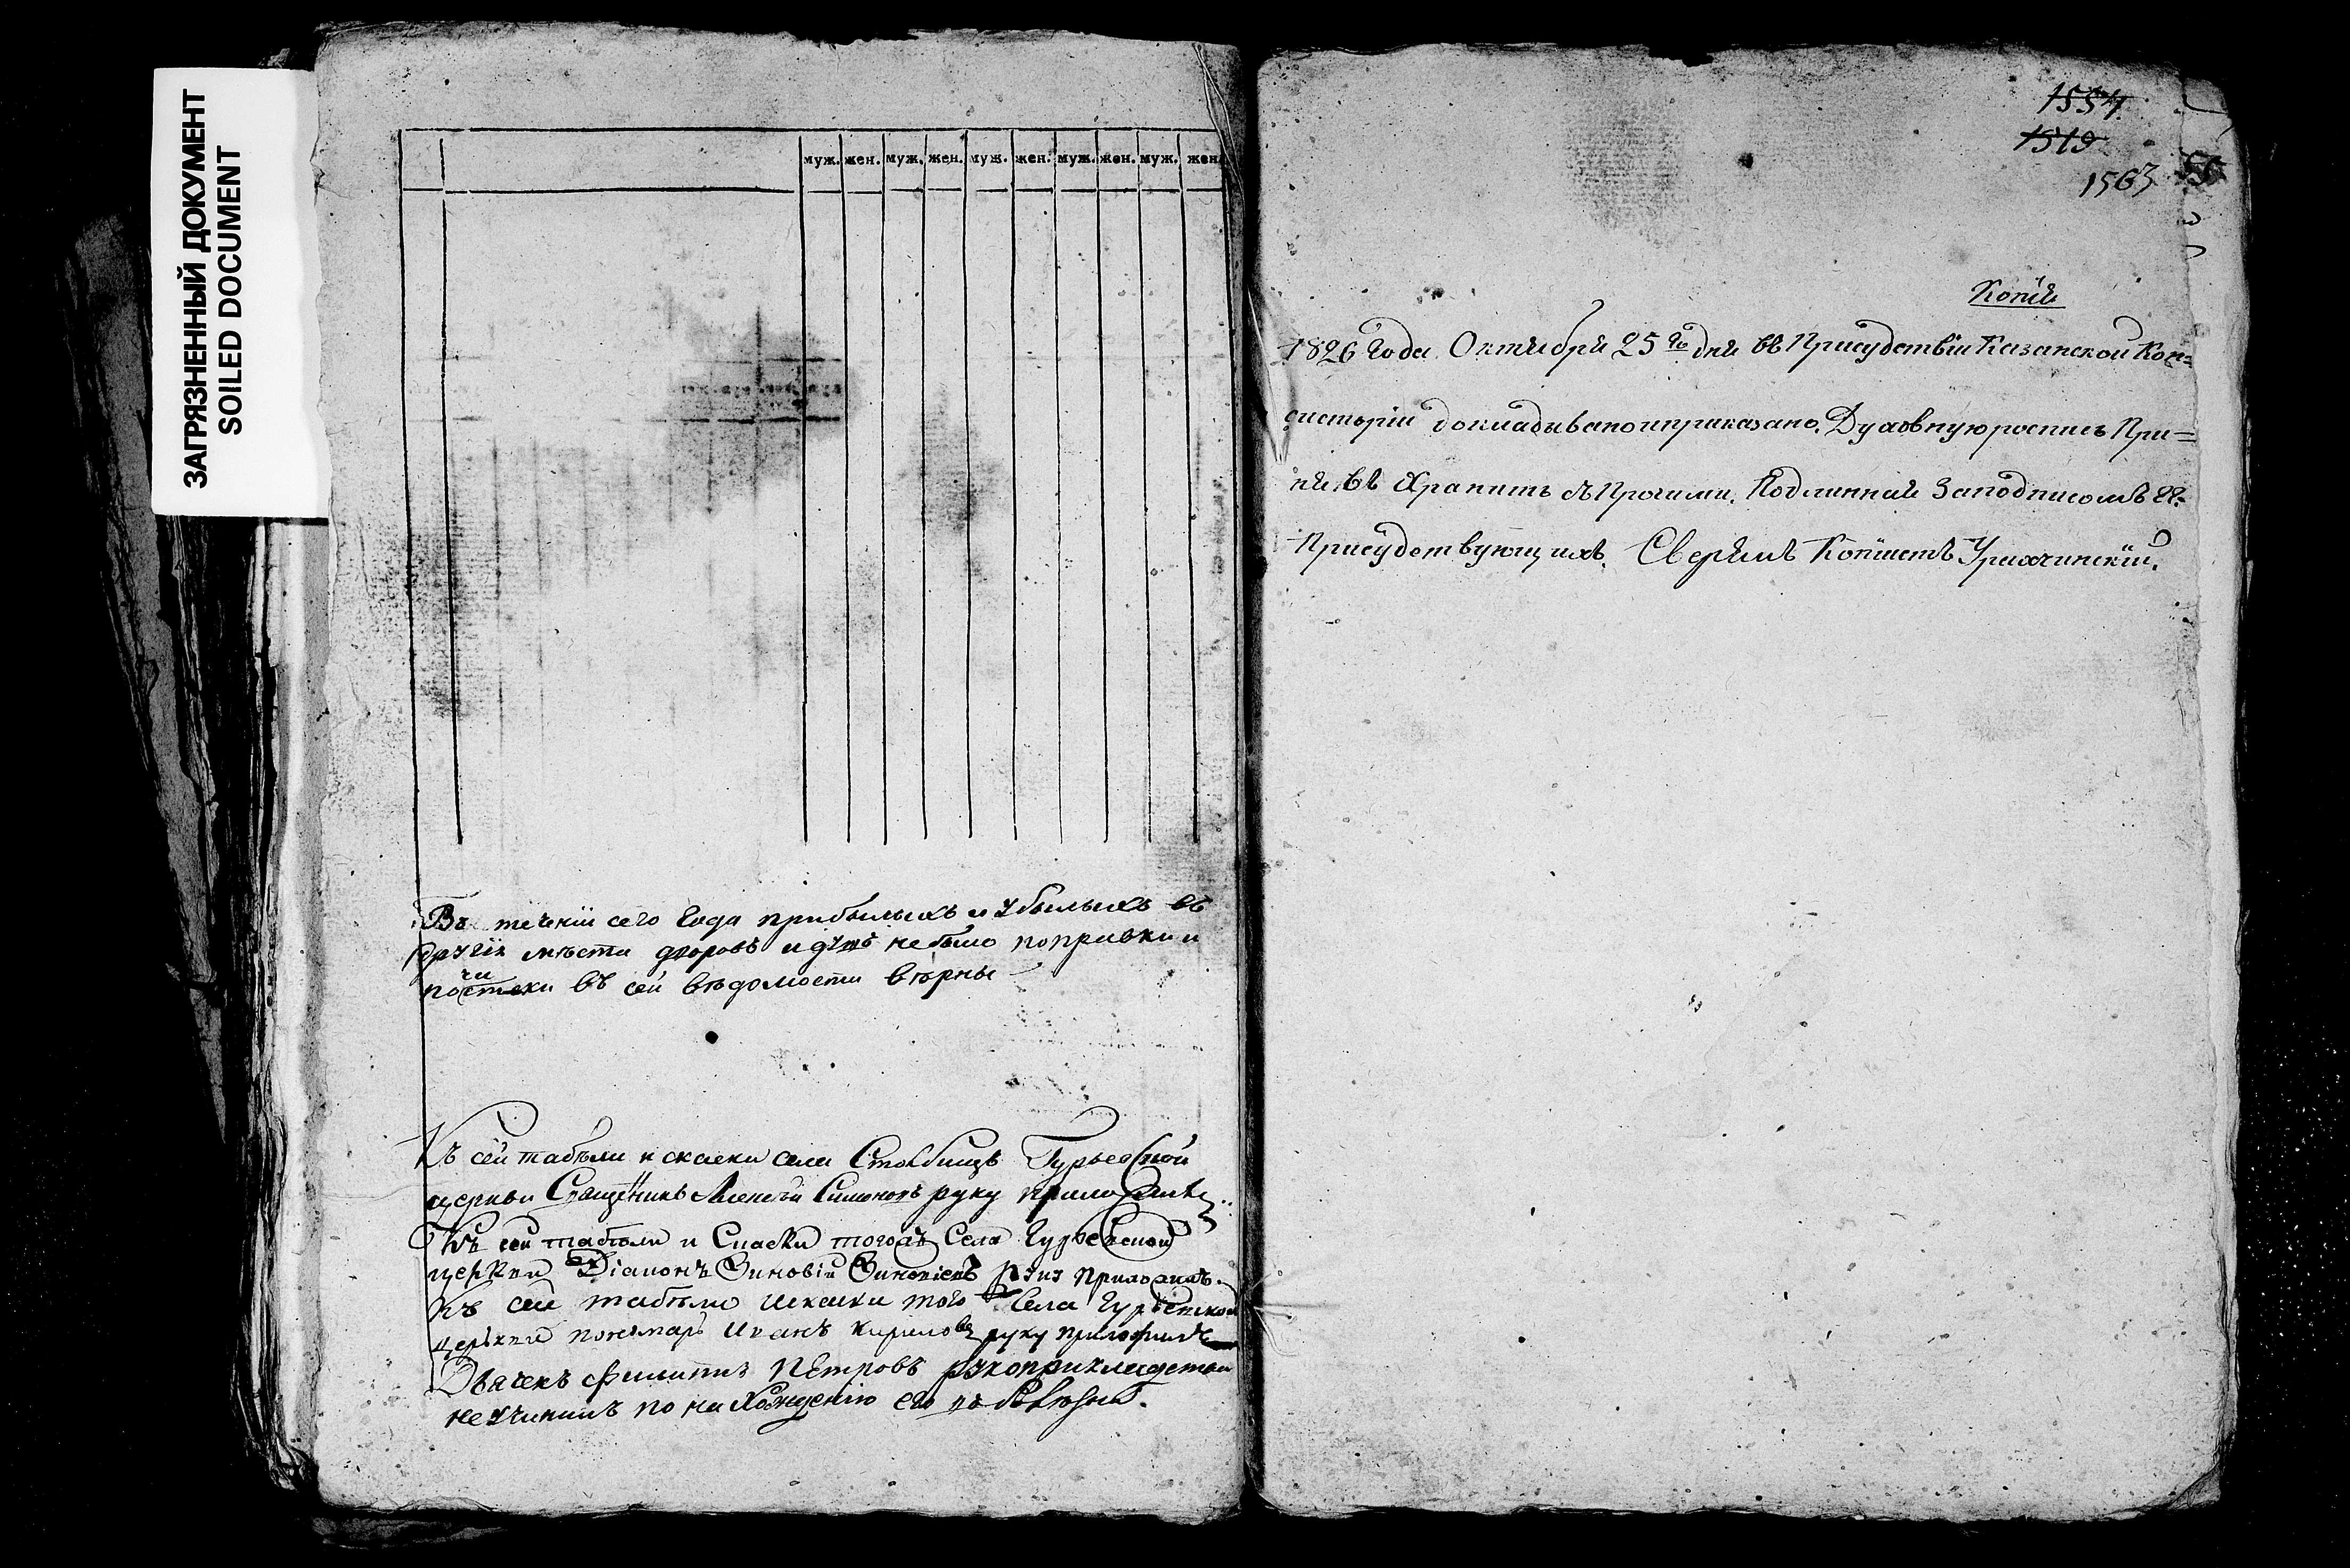 ЗАГРЯЗНЕННЫЙ ДОКУМЕНТ
SOILED DOCUMENT
муж. жен. муж. жен. муж. жен. муж. жен. муж. жен.
Въ теченіи сего года прибылыхъ и убылыхъ въ
другія мѣста дворовъ и душъ не было поправки и
почистки въ сей вѣдомости вѣрны
Къ сей табѣли и скаски села Столбищъ Гурьевской
церкви Священникъ Алексѣй Симоновъ руку приложилъ
Къ сей табѣли и Скаски тогожъ Села Гурьевской
церкви Діаконъ Зиновій Зиновіевъ руку приложилъ.
Къ сей табѣли и скаски того Села Гурьевской
церькви пономарь Иванъ Кириловъ руку приложилъ
Дьячекъ Филиппъ Петровъ рукоприкладства
не учинилъ по нахожденію его
1554
1519
1563
Копія
1826 года Октября 25 го дня въ Присудствіи Казанской Кон=
систоріи докладывано и приказано. Духовную роспись При=
нявъ Хранить съ Прочими. Подлинная За подписомъ Гг.
Присудствующихъ. Свѣрялъ Копіистъ